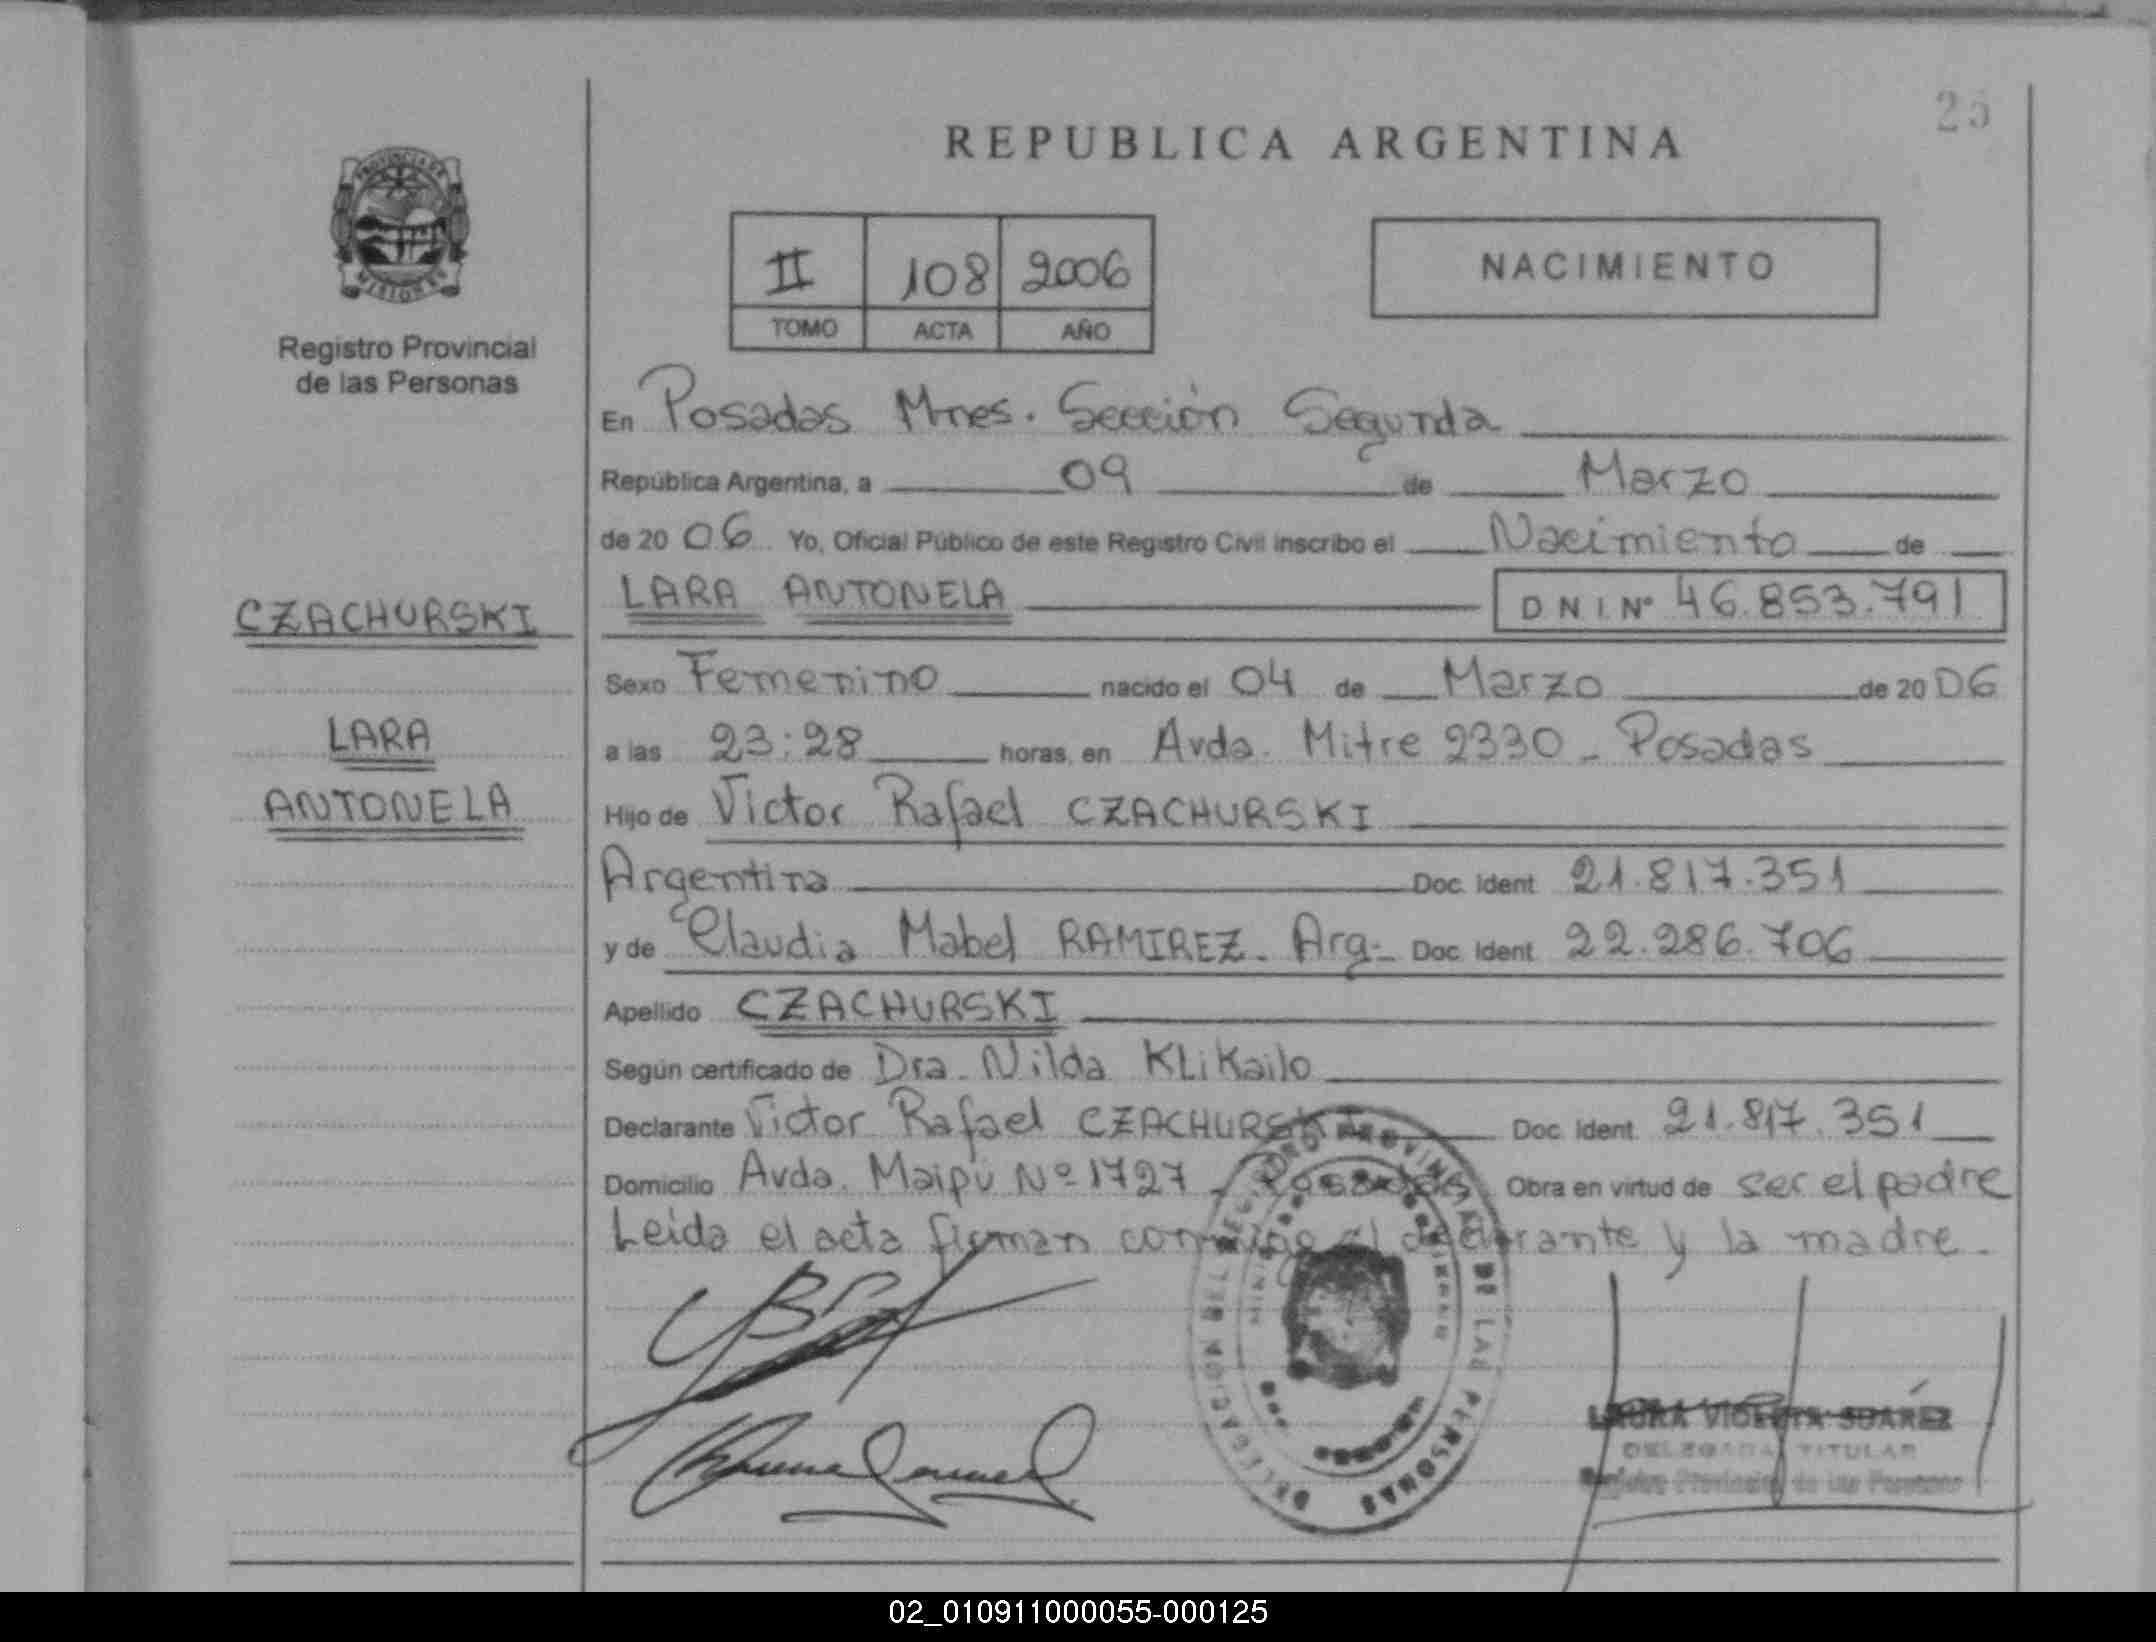 REPUBLICA ARGENTINA
25
PROVINCIA DE
MISIONES
Registro Provincial
de las Personas
II 108 2006
TOMO ACTA AÑO
NACIMIENTO
En Posadas Mnes. Sección Segunda
República Argentina, a 09 de Marzo
de 20 06 Yo, Oficial Público de este Registro Civil inscribo el Nacimiento de
CZACHURSKI
LARA
ANTONELA
LARA ANTONELA D N I. Nº 46.853.791
Sexo Femenino nacido el 04 de Marzo de 20 06
a las 23:28 horas, en Avda. Mitre 2330 - Posadas
Hijo de Victor Rafael CZACHURSKI
Argentina Doc. Ident 21.817.351
y de Claudia Mabel RAMIREZ - Arg - Doc. Ident 22.286.706
Apellido CZACHURSKI
Según certificado de Dra. Nilda KLiKailo
Declarante Victor Rafael CZACHURSKI Doc. Ident 21.817.351
Domicilio Avda. Maipú Nº 1727 - Posadas Obra en virtud de ser el padre
Leida el acta firman conmigo el declarante y la madre.
DELEGACION DEL REGISTRO PROVINCIAL DE LAS PERSONAS
LAURA VIOLETA SUAREZ
DELEGADA TITULAR
Registro Provincial de las Personas
02_010911000055-000125